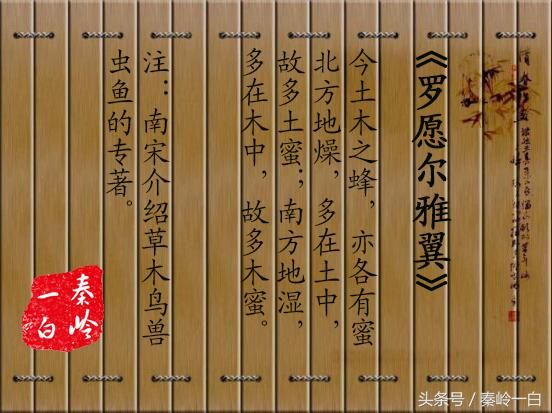 《罗愿尔雅翼》
今土木之蜂，亦各有蜜
北方地燥，多在土中，
故多土蜜；南方地湿，
多在木中，故多木蜜。
注：南宋介绍草木鸟兽
虫鱼的专著。
秦岭
一白
头条号 / 秦岭一白